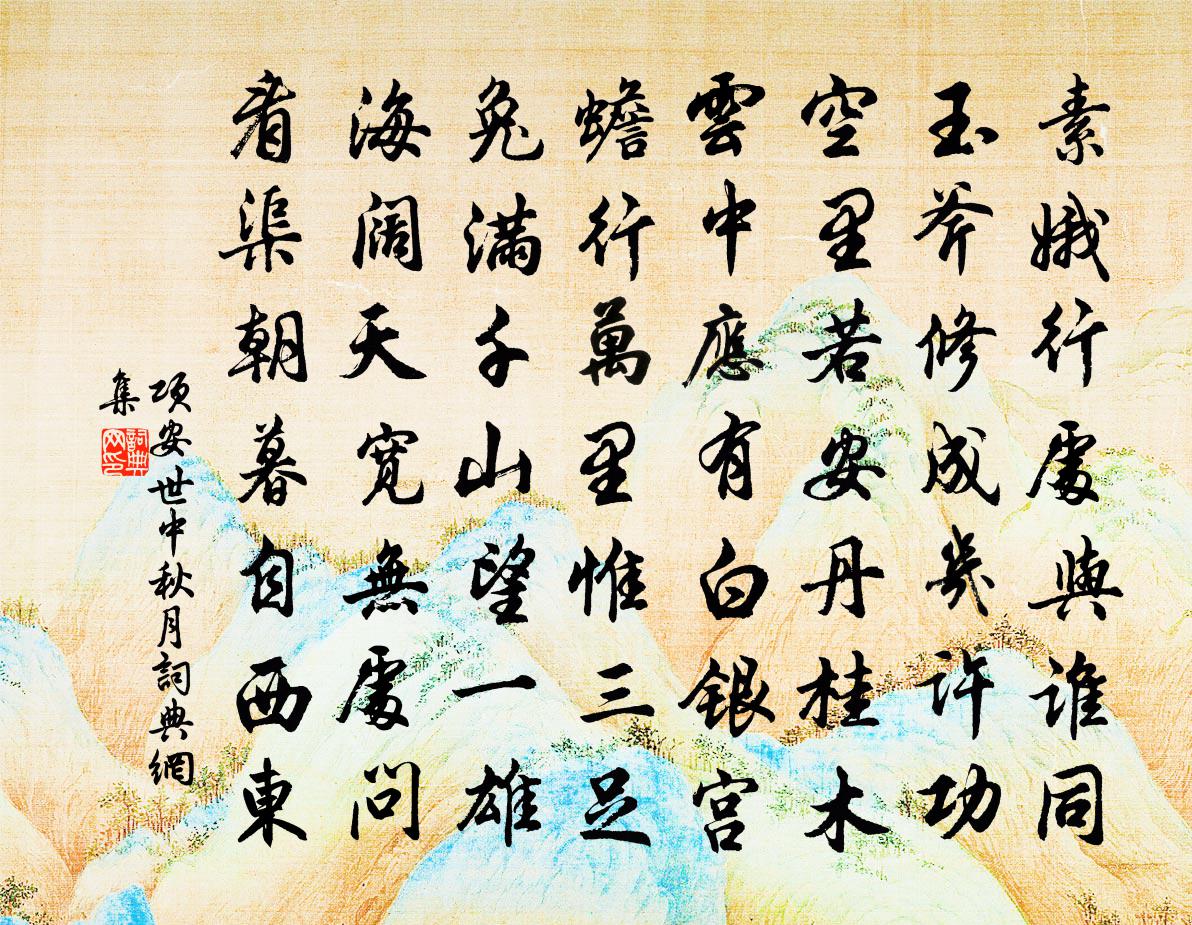 素娥行處與誰同
玉斧修成幾許功
空里若安丹桂木
雲中應有白銀宮
蟾行萬里惟三足
兔滿千山望一雄
海闊天寬無處問
看渠朝暮自西東
項安世中秋月詞典網
集
詞典
网印